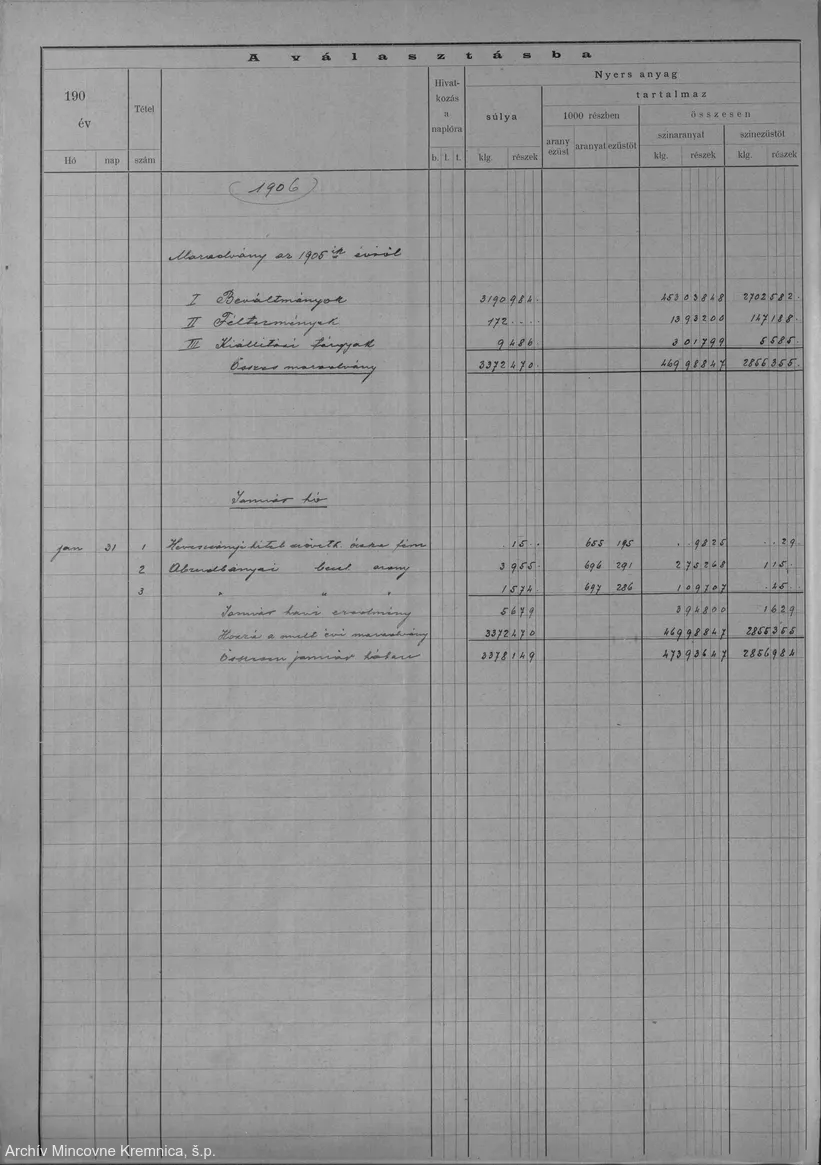 A választásba
190
év
Hó nap
Tétel
szám
Hivat-
kozás
a
naplóra
h. l. t.
Nyers anyag
súlya
klg. részek
tartalmaz
1000 részben
arany
ezüst
aranyat ezüstöt
összesen
színaranyat színezüstöt
klg. részek klg. részek
1906
Maradvány az 1905 ik évről
I Beváltmányok 3190 984. 453 03848 2702 582.
II Féltermények 172 . . . . 13 93200 147 188.
III Kiállítási tárgyak 9 486. 3 01799 5 585.
Összes maradvány 3372 470. 469 98847 2855 355.
Január hó
jan 31 1 . 15 . . 655 195 . . 9825 . . 29
2 Abrudbányai arany 3 955. 696 291 2 75268 1 15.
3 " " " 1 574. 697 286 1 09707 . 45.
Január havi eredmény 5 679 3 94800 1 629
Hozzá a mult évi maradvány 3372 470 469 98847 2855 355
Összesen január hóban 3378 149 473 93647 2856 984
Archív Mincovne Kremnica, š.p.